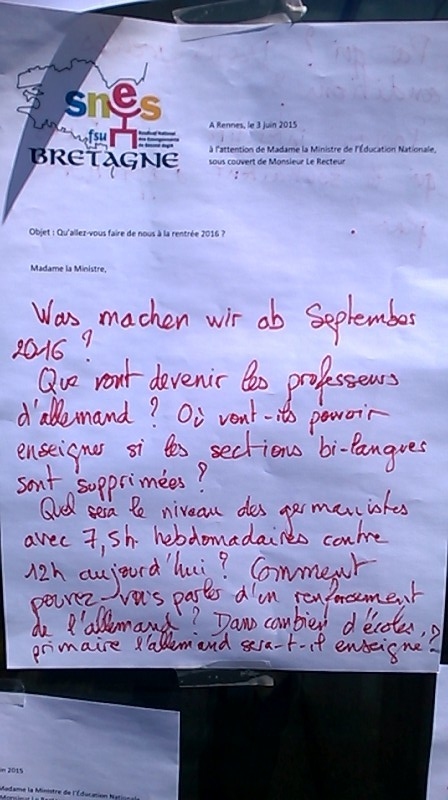 snes
fsu
Syndicat National
des Enseignements
de Second degré
BRETAGNE
A Rennes, le 3 juin 2015
à l'attention de Madame la Ministre de l'Éducation Nationale,
sous couvert de Monsieur Le Recteur
Objet : Qu'allez-vous faire de nous à la rentrée 2016 ?
Madame la Ministre,
Was machen wir ab September
2016 ?
Que vont devenir les professeurs
d'allemand ? Où vont-ils pouvoir
enseigner si les sections bi-langues
sont supprimées ?
Quel sera le niveau des germanistes
avec 7,5h hebdomadaires contre
12h aujourd'hui ? Comment
pouvez-vous parler d'un renforcement
de l'allemand ? Dans combien d'écoles
primaire l'allemand sera-t-il enseigné ?
in 2015
Madame la Ministre de l'Éducation Nationale,
Monsieur Le Recteur